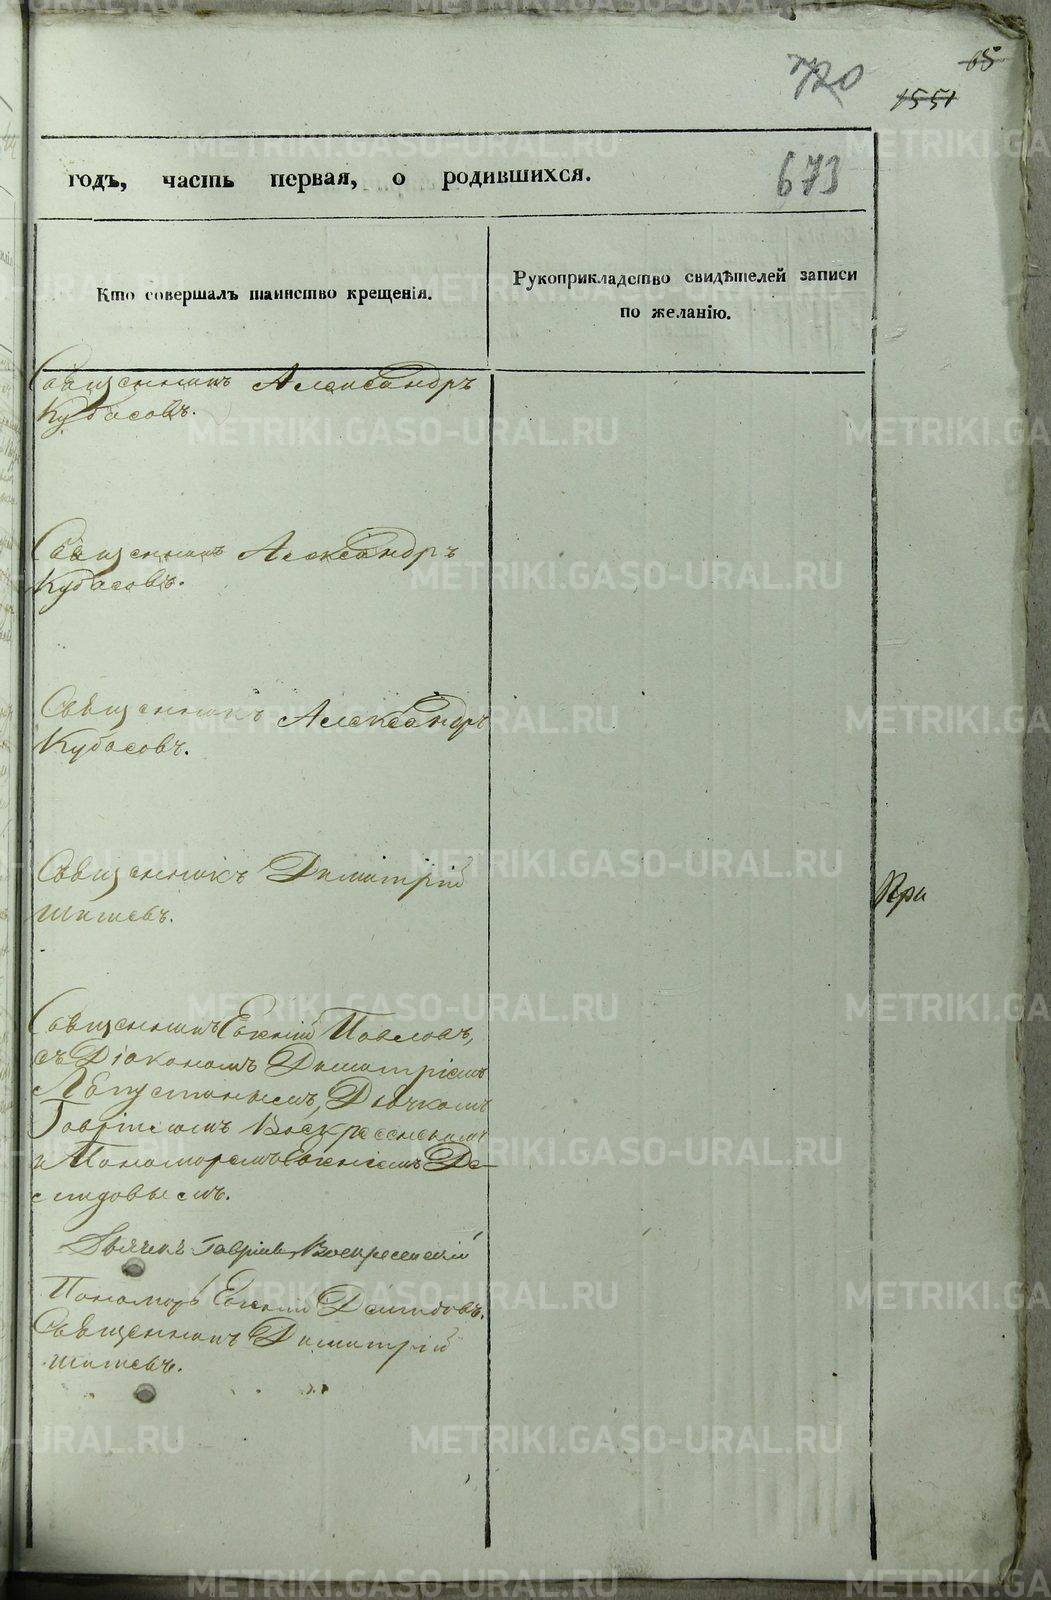 720
65
1551
673
годъ, часть первая, о родившихся.
Кто совершалъ таинство крещенія.
Рукоприкладство свидѣтелей записи
по желанію.
Священникъ Александръ
Кубасовъ.
Священникъ Александръ
Кубасовъ.
Священникъ Александръ
Кубасовъ.
Священникъ Димитрій
При
Священникъ Евгеній Павловъ,
съ Діакономъ Димитріемъ
Дьячкомъ
Гавріиломъ Воскресенскимъ
и Пономоремъ Евгеніемъ Де-
мидовымъ.
Дьячекъ Гавріилъ Воскресенскій
Пономорь Евгеній Демидовъ.
Священникъ Димитрій
METRIKI.GASO-URAL.RU